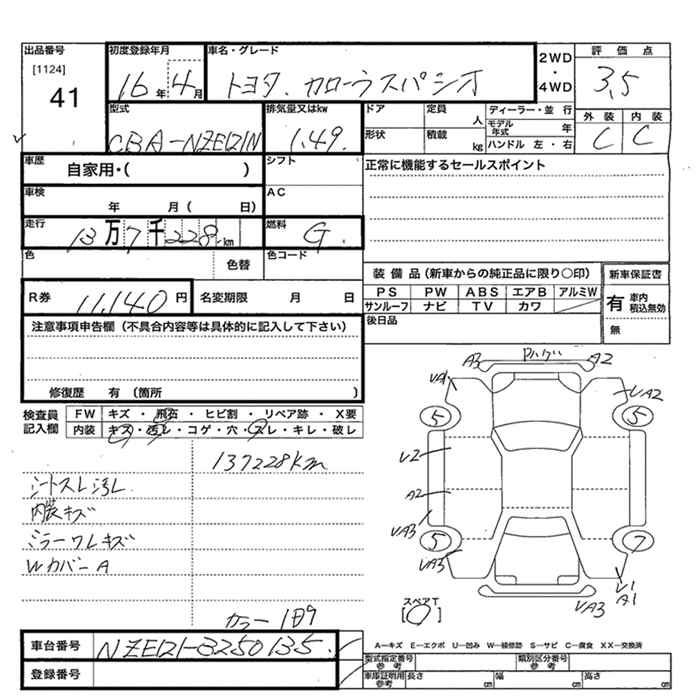 出品番号 初度登録年月 車名・グレード 2WD・4WD 評価点
[1124] 41 16年 4月 トヨタ. カローラスパシオ 3.5
型式 排気量又はkw ドア 定員 人 ディーラー・並行 外装 内装
CBA-NZE121N 1.49. 形状 積載 kg モデル年式 年 ハンドル 左・右 C C
車歴 自家用・( ) シフト 正常に機能するセールスポイント
車検 年 月( 日) AC
走行 13万7千228km 燃料 G.
色 色替 色コード
装備品(新車からの純正品に限り○印) 新車保証書
R券 11,140円 名変期限 月 日 PS PW ABS エアB アルミW 有 車内積込無効
サンルーフ ナビ TV カワ
注意事項申告欄(不具合内容等は具体的に記入して下さい) 後日品 無
修復歴 有(箇所 )
検査員記入欄 FW キズ・飛石・ヒビ割・リペア跡・X要
内装 キズ・汚レ・コゲ・穴・スレ・キレ・破レ
137228km
シートスレ汚レ
内装キズ
ミラーワレキズ
WカバーA
カラー 1B9
A3 Pハゲ A2
VA1 VA2
5 5
V2
A2
VA3
5 7
VA3 V1
A1
VA3
スペアT
[ ]
車台番号 NZE121-3250135.
登録番号
A－キズ E－エクボ U－凹み W－補修跡 S－サビ C－腐食 XX－交換済
型式指定番号参考 類別区分番号参考
車庫証明用参考 長さ ㎝ 幅 ㎝ 高さ ㎝